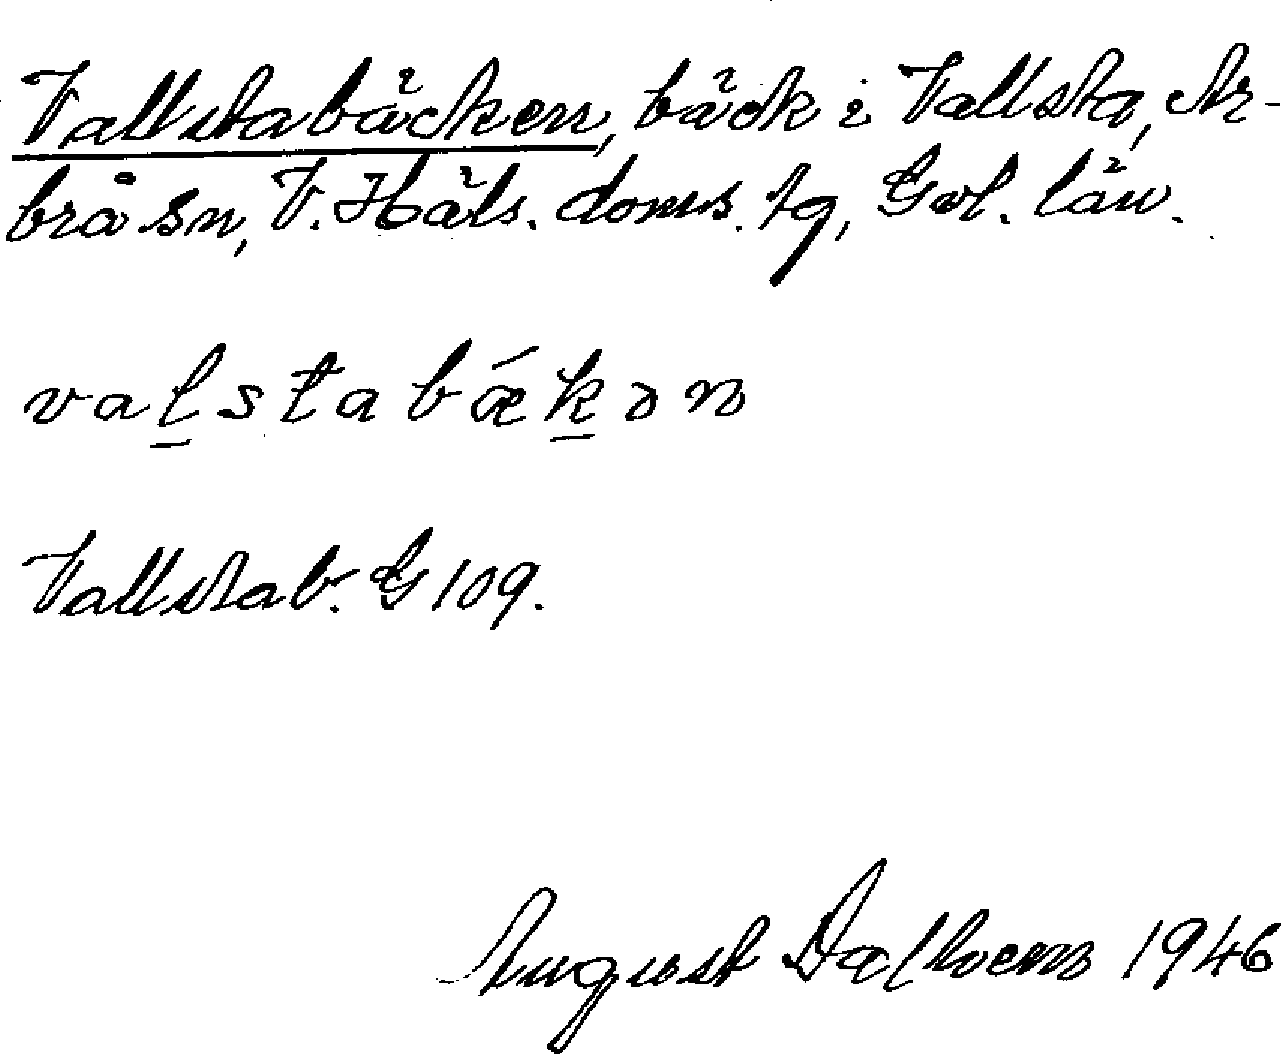 Vallstabäcken, bäck i Vallsta, Ar-
brå sn, V. Häls. doms. tg, Gvl. län.
vaḻstabǽḵən
Vallstab. G 109.
August 1946